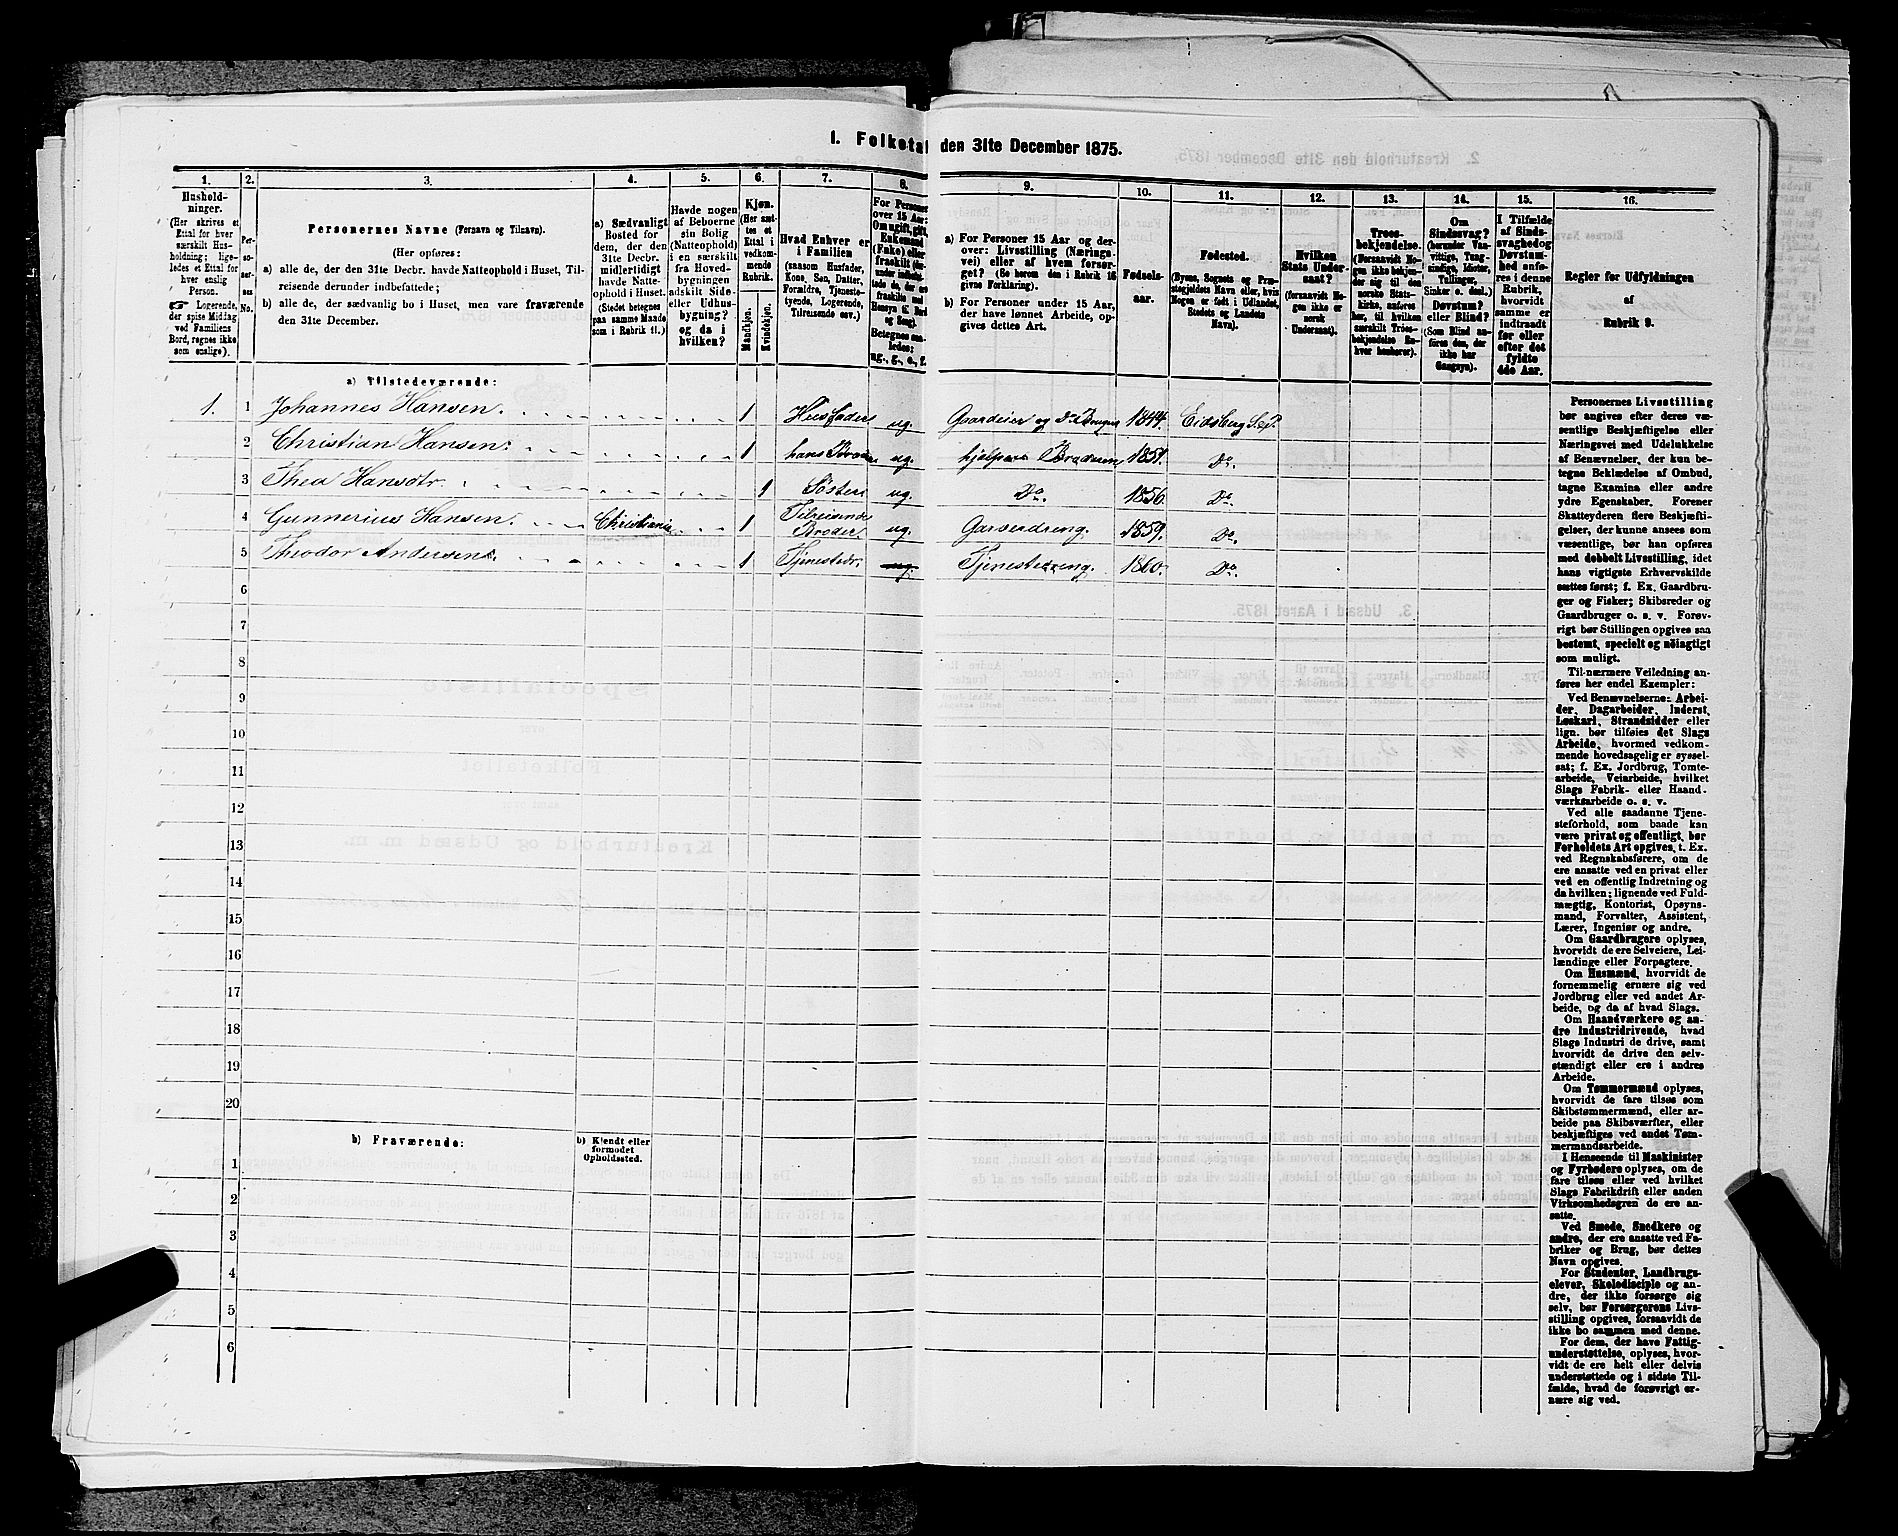 1. Folketal den 31te December 1875.
1.
Hushold-
ninger.
(Her skrives et
Ettal for hver
særskilt Hus-
holdning; lige-
ledes et Ettal for
hver enslig
Person.
☞ Logerende,
der spise Middag
ved Familiens
Bord, regnes ikke
som enslige).
2.
Per-
so-
ner-
nes
No.
3.
Personernes Navne (Fornavn og Tilnavn).
(Her opføres:
a) alle de, der den 31te Decbr. havde Natteophold i Huset, Til-
reisende derunder indbefattede;
b) alle de, der sædvanlig bo i Huset, men vare fraværende
den 31te December.
4.
a) Sædvanligt
Bosted for
dem, der den
31te Decbr.
midlertidigt
havde Natte-
ophold i Huset.
(Stedet betegnes
paa samme Maade
som i Rubrik 11.)
5.
Havde nogen
af Beboerne
sin Bolig
(Natteophold)
i en særskilt
fra Hoved-
bygningen
adskilt Side-
eller Udhus-
bygning?
og da i
hvilken?
6.
Kjøn.
(Her sæt-
tes et
Ettal i
vedkom-
mende
Rubrik.
Mandkjøn.
Kvindekjøn.
7.
Hvad Enhver er
i Familien
(saasom Husfader,
Kone, Søn, Datter,
Forældre, Tjeneste-
tyende, Logerende,
Tilreisende osv.)
8.
For Personer
over 15 Aar:
Om ugift, gift,
Enkemand
(Enke) eller
fraskilt
Betegnes saa-
ledes:
ug., g., e., f.
9.
a) For Personer 15 Aar og der-
over: Livsstilling (Nærings-
vei) eller af hvem forsør-
get? (Se herom den i Rubrik 16
givne Forklaring).
b) For Personer under 15 Aar,
der have lønnet Arbeide, op-
gives dettes Art.
10.
Fødsels-
aar.
11.
Fødested.
(Byens, Sognets og Præ-
stegjeldets Navn eller, hvis
Nogen er født i Udlandet,
Stedets og Landets
Navn).
12.
Hvilken
Stats Under-
saat?
(forsaavidt No-
gen ikke er
norsk
Undersaat).
13.
Troes-
bekjendelse.
(Forsaavidt No-
gen ikke bekjen-
der sig til den
norske Stats-
kirke, anføres
her, til hvilken
særskilt Troes-
bekjendelse En-
hver henhører).
14.
Om
Sindssvag?
(herunder Van-
vittige, Tung-
sindige, Idioter,
Tullinger,
Sinker o. desl.)
Døvstum?
eller Blind?
(Som Blind an-
føres den, der
ikke har
Gangsyn).
15.
I Tilfælde
af Sinds-
svaghed og
Døvstum-
hed anfø-
res i denne
Rubrik,
hvorvidt
samme er
indtraadt
før eller
efter det
fyldte
4de Aar.
16.
Regler for Udfyldningen
af
Rubrik 9.
a) Tilstedeværende:
1. 1 Johannes Hansen. 1 Husfader ug. Gaardeier og do Bruger 1844. Eidsberg S. o. P.
2 Christian Hansen. 1 hans Broder ug. hjelper Broderen 1851. Do.
3 Thea Hansdtr. 1 Søster ug. Do. 1856. Do.
4 Gunnerius Hansen. Christiania 1 Tilreisende Broder. ug. Garverdreng. 1859. Do.
5 Theodor Andersen. 1 Tjenestedr. ug. Tjenestedreng. 1860. Do.
6
7
8
9
10
11
12
13
14
15
16
17
18
19
20
b) Fraværende:
b) Kjendt eller
formodet
Opholdssted.
1
2
3
4
5
6
Personernes Livsstilling
bør angives efter deres væ-
sentlige Beskjæftigelse eller
Næringsvei med Udelukkelse
af Benævnelser, der kun be-
tegne Beklædelse af Ombud,
tagne Examina eller andre
ydre Egenskaber. Forener
Skatteyderen flere Beskjæfti-
gelser, der kunne ansees som
væsentlige, bør han opføres
med dobbelt Livsstilling, idet
hans vigtigste Erhvervskilde
sættes først; f. Ex. Gaardbru-
ger og Fisker; Skibsreder og
Gaardbruger o. s. v. Forøv-
rigt bør Stillingen opgives saa
bestemt, specielt og nøiagtigt
som muligt.
Til nærmere Veiledning an-
føres her endel Exempler:
Ved Benævnelserne: Arbei-
der, Dagarbeider, Inderst,
Løskarl, Strandsidder eller
lign. bør tilføies det Slags
Arbeide, hvormed vedkom-
mende hovedsagelig er syssel-
sat; f. Ex. Jordbrug, Tomte-
arbeide, Veiarbeide, hvilket
Slags Fabrik- eller Haand-
værksarbeide o. s. v.
Ved alle saadanne Tjene-
steforhold, som baade kan
være privat og offentligt, bør
Forholdets Art opgives, t. Ex.
ved Regnskabsførere, om de
ere ansatte ved en privat eller
ved en offentlig Indretning og
da hvilken; lignende ved Fuld-
mægtig, Kontorist, Opsyns-
mand, Forvalter, Assistent,
Lærer, Ingeniør og andre.
Om Gaardbrugere oplyses,
hvorvidt de ere Selveiere, Lei-
lændinge eller Forpagtere.
Om Husmænd, hvorvidt de
fornemmelig ernære sig ved
Jordbrug eller ved andet Ar-
beide, og da af hvad Slags.
Om Haandværkere og an-
dre Industridrivende, hvad
Slags Industri de drive, samt
hvorvidt de drive den selv-
stændigt eller ere i andres
Arbeide.
Om Tømmermænd oplyses,
hvorvidt de fare tilsøs som
Skibstømmermænd, eller ar-
beide paa Skibsværfter, eller
beskjæftiges ved andet Tøm-
mermandsarbeide.
I Henseende til Maskinister
og Fyrbødere oplyses, om de
fare tilsøs eller ved hvilket
Slags Fabrikdrift eller anden
Virksomhedsgren de ere an-
satte.
Ved Smede, Snedkere og
andre, der ere ansatte ved Fa-
briker og Brug, bør dettes
Navn opgives.
For Studenter, Landbrugs-
elever, Skoledisciple og an-
dre, der ikke forsørge sig
selv, bør Forsørgerens Livs-
stilling opgives, forsaavidt de
ikke bo sammen med denne.
For dem, der have Fattig-
understøttelse, oplyses, hvor-
vidt de ere helt eller delvis
understøttede og i sidste Til-
fælde, hvad de forøvrigt er-
nære sig ved.